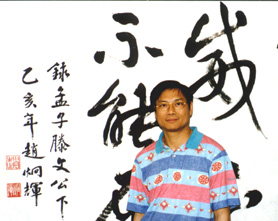 威
不能
錄孟子滕文公下
乙亥年趙炯輝